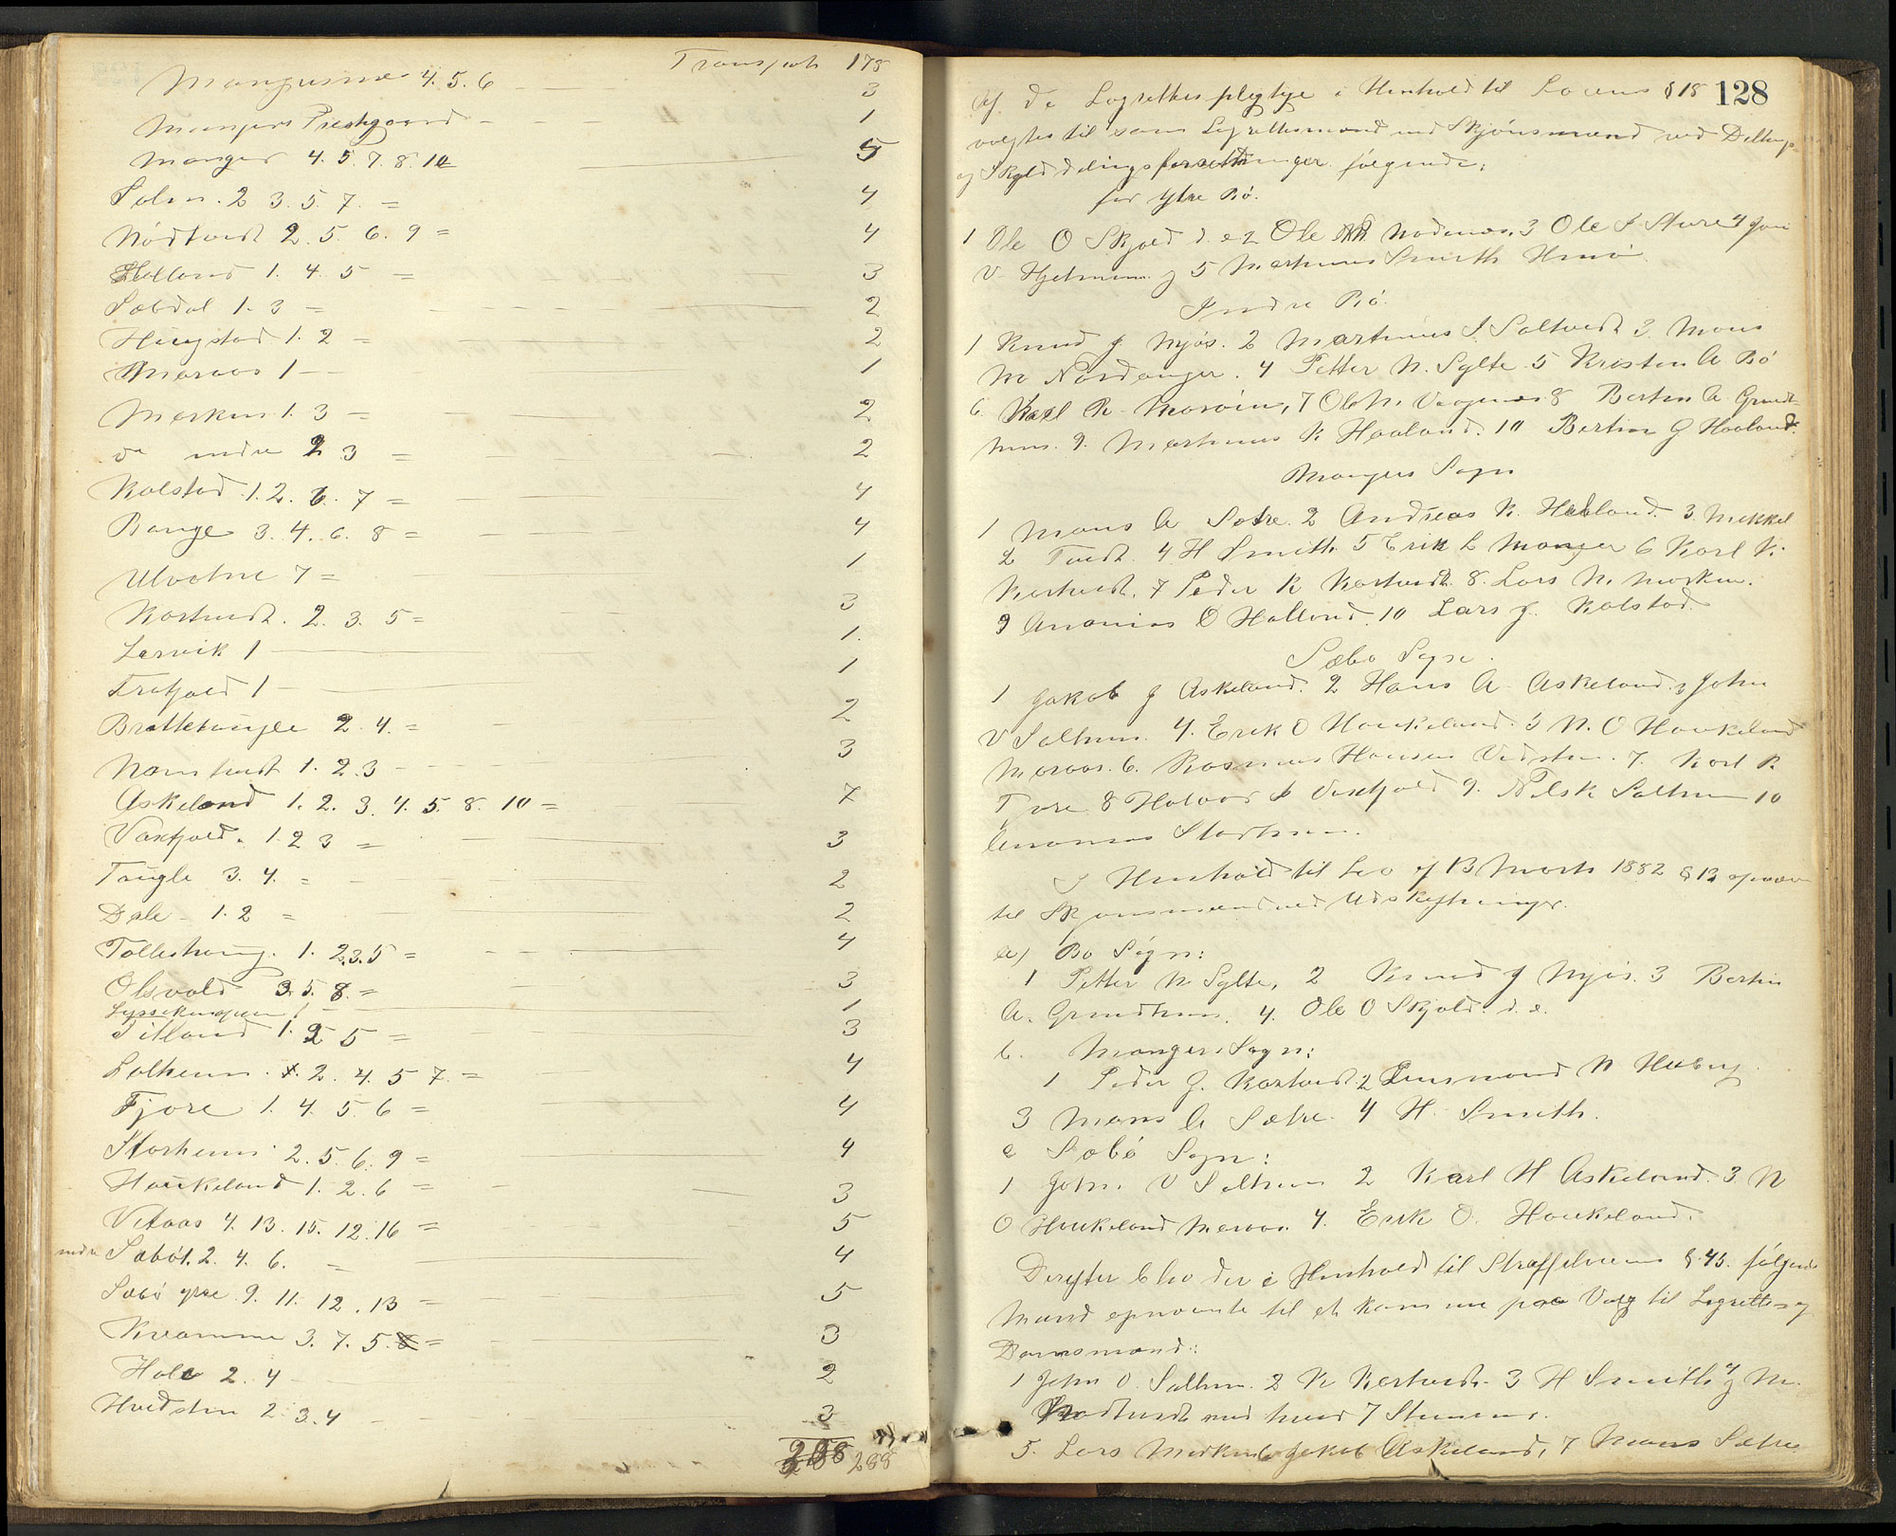 Transport 178
Mangersnes 4. 5. 6 3
Mangers Prestgaard 1
Manger 4. 5. 7. 8. 10 5
Solem. 2 3. 5. 7. = 4
Nödtvedt 2. 5. 6. 9 = 4
Halland 1. 4. 5 = 3
Sæbdal 1. 3 = 2
Haugstad 1. 2 = 2
Maraas 1 1
Morken 1. 3 = 2
do indre 2 3 = 2
Kolstad 1. 2. 6. 7 = 4
Bange 3. 4. 6. 8 = 4
Ulvatne 7 = 1
Kartvedt. 2. 3. 5 = 3
Lervik 1 1.
Trafjeld 1 1
Brattetaugle 2. 4. = 2
Namtvedt 1. 2. 3 3
Askeland 1. 2. 3. 4. 5. 8. 10 = 7
Vaxfjeld. 1. 2 3 = 3
Taugle 3. 4. = 2
Dale 1. 2 = 2
Tolleshaug. 1. 2.3.5 = 4
Olsvold 3. 5. 8. = 3
1 1
Titland 1. 2 5 = 3
Solheim. 2. 4. 5 7. = 4
Fjore 1. 4. 5. 6 = 4
Storheim 2. 5. 6. 9 = 4
Haukeland 1. 2. 6 = 3
Vetaas 4. 13. 15. 12. 16 = 5
indre Sæbö 1. 2. 4. 6. = 4
Sæbö ytre 9. 11. 12. 13 = 5
Kvamme 3. 7. 5. = 3
Hole 2. 4 2
Hvidsten 2. 3. 4 3
288
128
Af de Lagrettespligtige i Henhold til Lovens § 18
valgtes til som Lagrettesmænd ved Skjönsmænd ved Delings
og Skylddelingsforretninger følgende:
for ytre Bö.
1 Ole O Skjold d. e 2 Ole Nodenes, 3 Ole I Sture 4 Joh
V. Hjelmen og 5 Martinus Smith Herö
Indre Bö.
1 Knud J Njös. 2 Martinus I. Soltvedt 3. Mons
M Nordanger. 4 Petter N. Sylte 5 Kristen A Bö
6. Karl R. 7 Ole N. Vaagenes 8 Bertin A. Grind-
hm. 9. Martinus K Haaland. 10 Bertin J Haaland.
Mangers Sogn
1 Mons A Sætre. 2 Andreas K. Halland. 3. Mikkel
L Tvedt. 4 H Smith 5 Erik L Manger 6 Karl K.
Kartvedt, 7 Peder K Kartvedt 8. Lars N. Morken.
9 Ananias O Halland. 10 Lars J. Kolstad.
Sæbø Sogn.
1 Jakob J Askeland. 2 Hans A Askeland. 3 John
V Solheim. 4. Erik O Haukeland. 5 N. O Haukeland
Maraas. 6. Rasmus Hansen Hvidsten. 7. Karl R.
Fjore 8 Halvor I Vaxfjeld 9. Nils K Solheim 10
Ananias Storheim.
I Henhold til Lov af 13 Marts 1882 § 12 opnævn
til Skjønsmænd ved Udskiftninger.
a) Bö Sogn:
1 Petter N Sylte, 2 Knud J Njös. 3 Bertin
A. Grindhm. 4. Ole O Skjold. d. e.
b. Mangers Sogn:
1 Peder J. Kartvedt 2 N
3 Mons A Sætre. 4 H. Smith.
c Sæbö Sogn:
1 John V Solheim 2 Karl H Askeland. 3. N
O Haukeland Maraas. 4. Erik O. Haukeland.
Derefter blev der i Henhold til Straffelovens § 45. følgende
Mænd opnævnte til at komme paa Valg til Lagrettes og
Domsmænd:
1 John V. Solheim. 2 K Kartvedt 3 H Smith 4 M.
Nødtvedt med hver 7 Stemmer.
5. Lars Morken 6 Jakob Askeland, 7 Mons Sætre